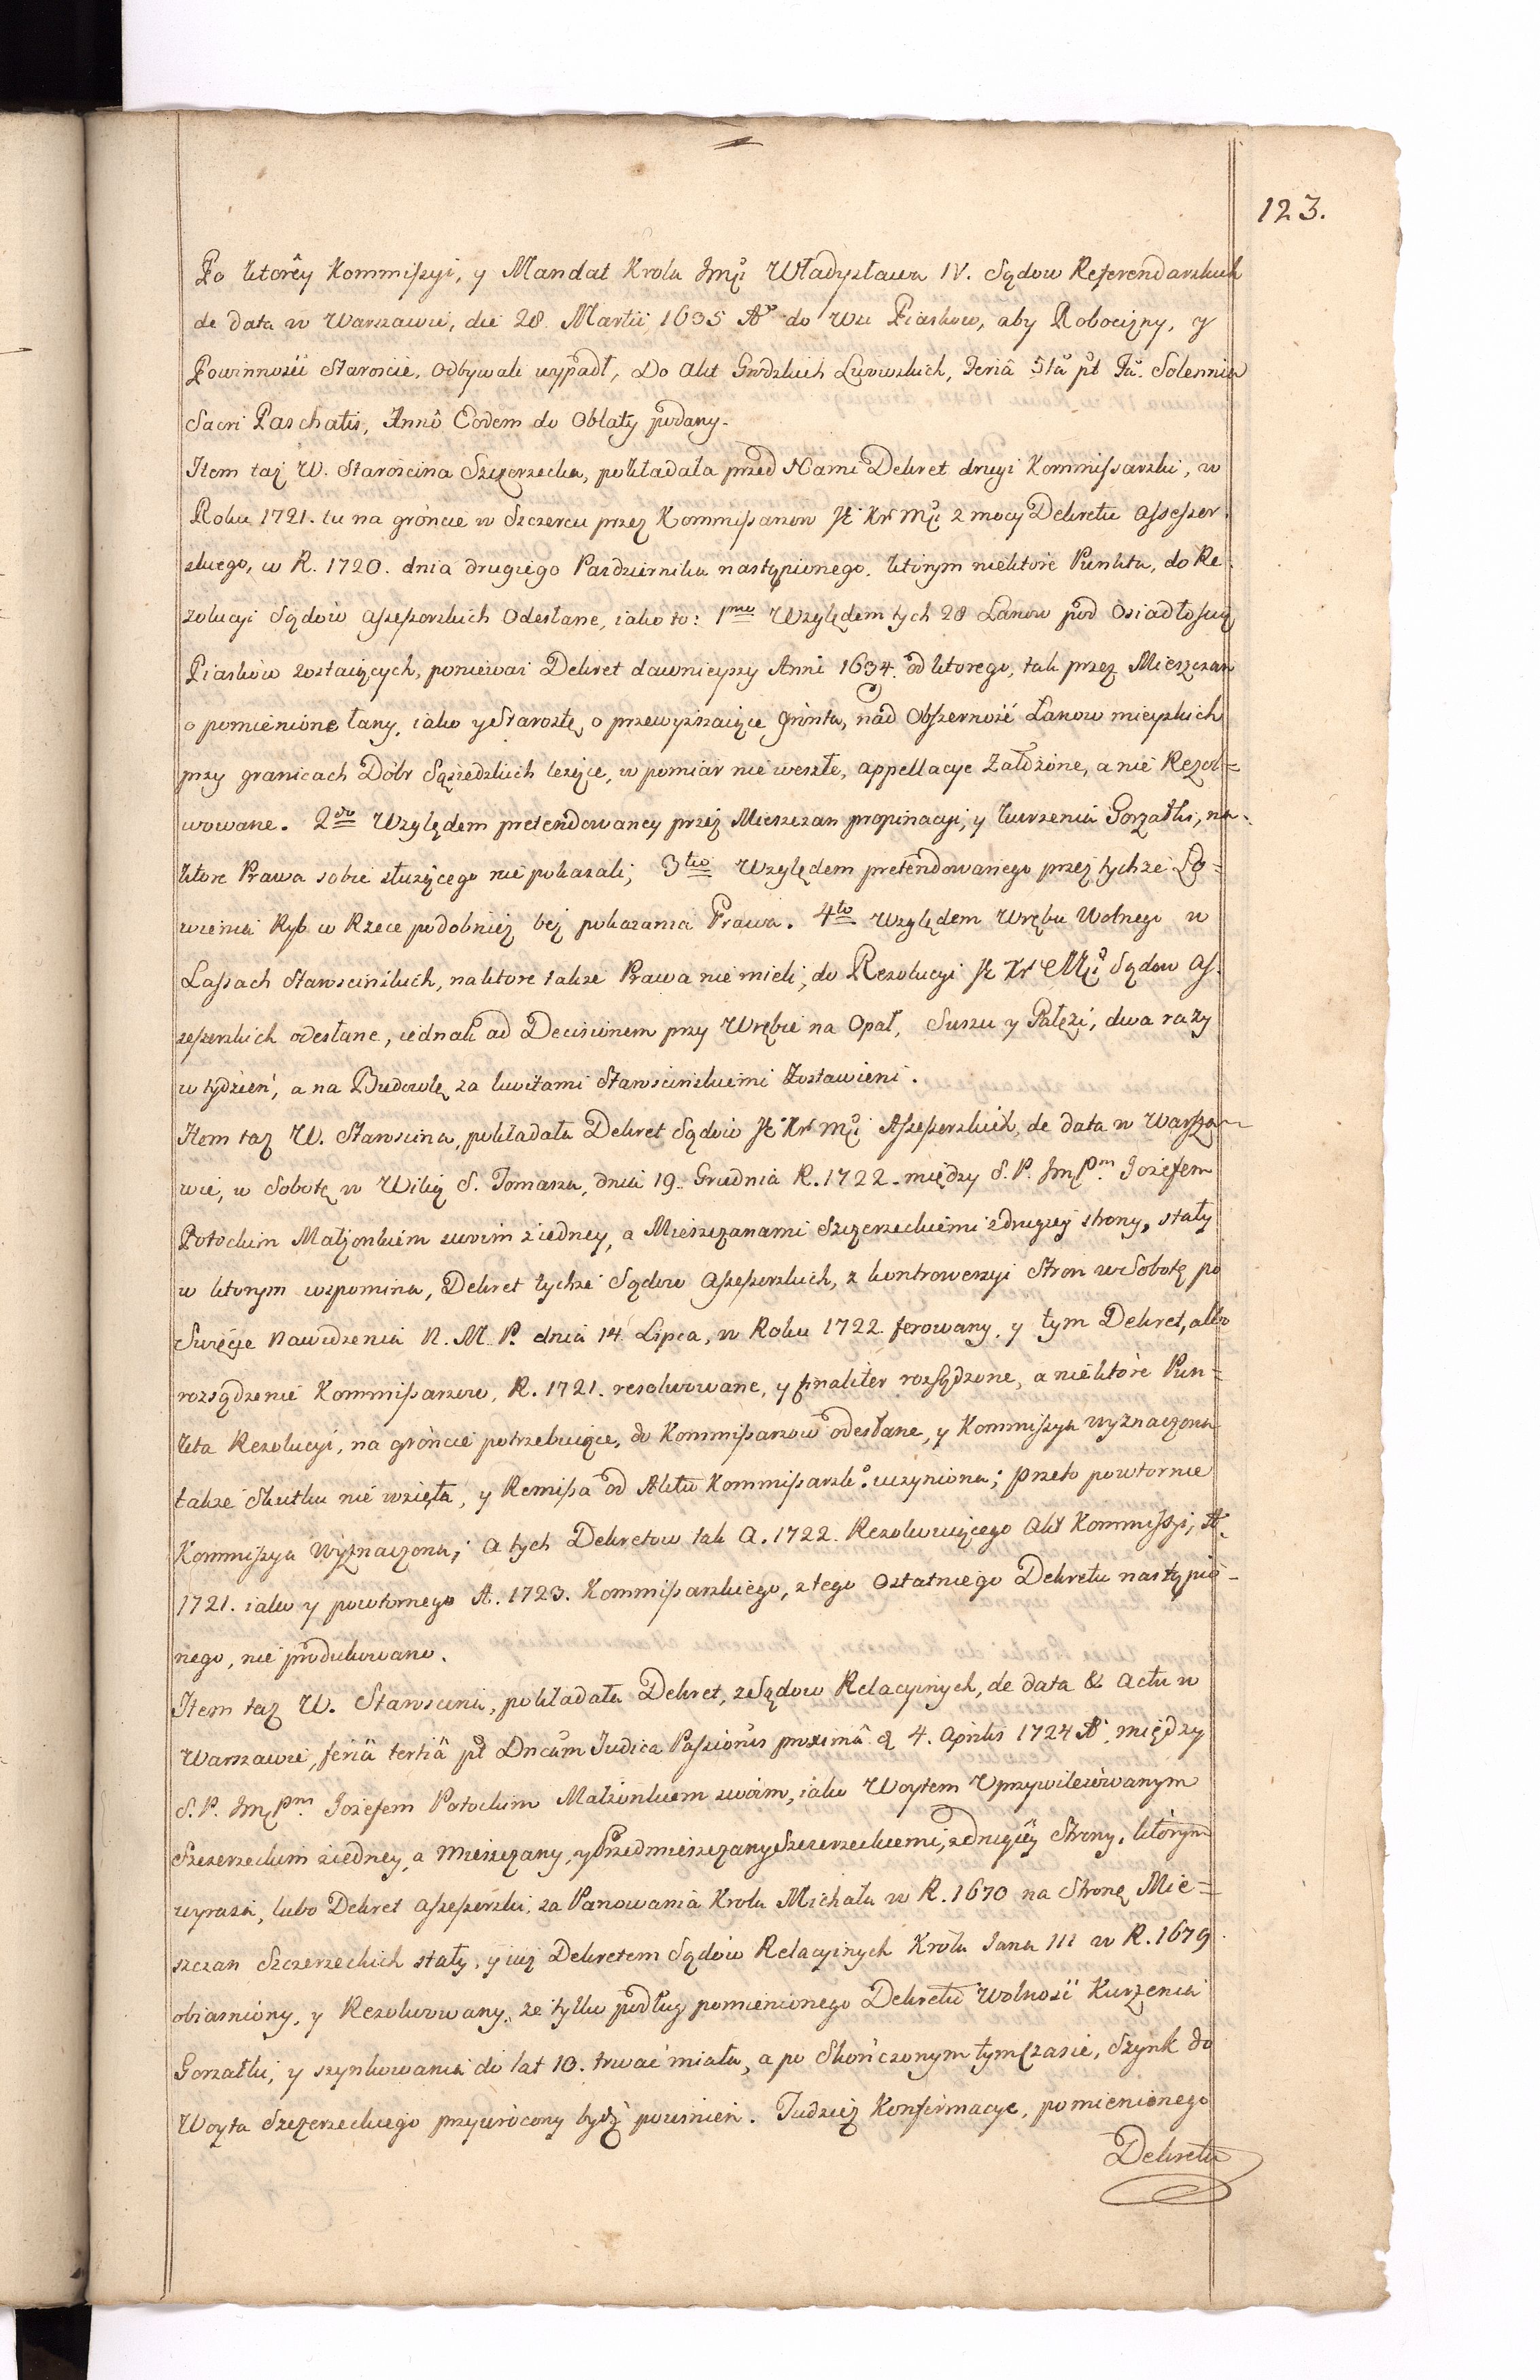 123.
Po ktorey Kommissyi, y Mandat Krola Jmci Władysława IV. Sądow Referendarskich
de data w Warszawie, die 28 Martii 1635 Ao do Wsi Piaskow, aby Robocizny, y
Powinności Staroście, odbywali wypadł, Do Akt Grodzkich Lwowskich, Feriâ 5tâ pt Fta. Solennia
Sacri Paschatis, Annô Eodem do Oblaty podany.
Item taż W. Starościna Szczerzecka, pokładała przed Nami Dekret drugi Kommissarski, w
Roku 1721. tu na gróncie w Szczercu przez Kommissarzow JKrMci z mocy Dekretu Assessor-
skiego, w R. 1720. dnia drugiego Pazdziernika nastąpionego. ktorym niektore Punkta, do Re-
zolucyi Sądow Assessorskich Odesłane, iako to: 1mo Względem tych 28 Łanow pod Osiadłością
Piaskow zostaiących, ponieważ Dekret dawnieyszy Anni 1634. od ktorego, tak przez Mieszczan
o pomienione łany, iako y Starostę, o przewyższaiące grónta, nad Obszerność Łanow mieyskich
przy granicach Dóbr Sąsiedzkich leżące, w pomiar nie weszłe, appellacye Założone, a nie Rezol=
wowane. 2do Względem pretendowaney przez Mieszczan propinacyi, y kurzenia Gorzałki, na
ktore Prawa sobie służącego nie pokazali; 3tio Względem pretendowanego przez tychże Ło=
wienia Ryb w Rzece podobnież bez pokazania Prawa. 4to Względem Wrębu Wolnego w
Lassach Starościńskich, na ktore także Prawa nie mieli, do Rezolucyi JKrMci Sądow As-
sessorskich odesłane, iednak ad Decisionem przy Wrębie na Opał, Suszu y Połęzi, dwa razy
w tydzień, a na Budowlę za kwitami Starościńskiemi Zostawieni.
Item taż W. Starościna, pokładała Dekret Sądow JKrMci Assessorskich, de data w Warsza-
wie, w Sobotę w Wilią S. Tomasza, dnia 19. Grudnia R. 1722. między S. P. JmPm. Jozefem
Potockim Małżonkiem swoim z iedney, a Mieszczanami Szczerzeckiemi z drugiey strony, stały
w ktorym wspomina, Dekret tychże Sądow Assessorskich, z kontrowersyi Stron w Sobotę po
Swięcie Nawidzenia N. M. P. dnia 14 Lipca, w Roku 1722 ferowany, y tym Dekret, albo
rozsądzenie Kommissarzow, R. 1721. resolwowane, y finaliter rozsądzone, a niektóre Pun=
kta Rezolucyi, na gróncie potrzebuiące, do Kommissarzow odesłane, y Kommissya wyznaczona
także Skutku nie wzięła, y Remissa od Aktu Kommissarsko uczyniona; przeto powtornie
Kommissya Wyznaczona; a tych Dekretow tak A. 1722. Rezolwuiącego Akt Kommissyi, A.
1721. iako y powtornego A. 1723. Kommissarskiego, z tego Ostatniego Dekretu nastąpio-
nego, nie produkowano.
Item taż W. Starościna, pokładała Dekret, z Sądow Relacyinych, de data & Actu w
Warszawie, feriâ tertiâ pt Dncam Judica Passionis proximâ d 4. Aprilis 1724 Ao. między
S. P. JmPm. Jozefem Potockim Małżonkiem swoim, iako Woytem Uprzywileiowanym
Szczerzeckim z iedney, a Mieszczany, y Przedmieszczany Szczerzeckiemi, z drugiey Strony, którym
wyraża, lubo Dekret Assessorski, za Panowania Krola Michała w R. 1670 na Stronę Mie=
szczan Szczerzeckich stały, y iuż Dekretem Sądow Relacyinych Króla Jana III w R. 1679
obiaśniony, y Rezolwowany, że tylko podług pomienionego Dekretu Wolność Kurzenia
Gorzałki, y szynkowania do lat 10. trwać miała, a po Skończonym tym czasie, Szynk do
Woyta Szczerzeckiego przywrócony bydź powinien. Tudzież Konfirmacye, pomienionego
Dekretu